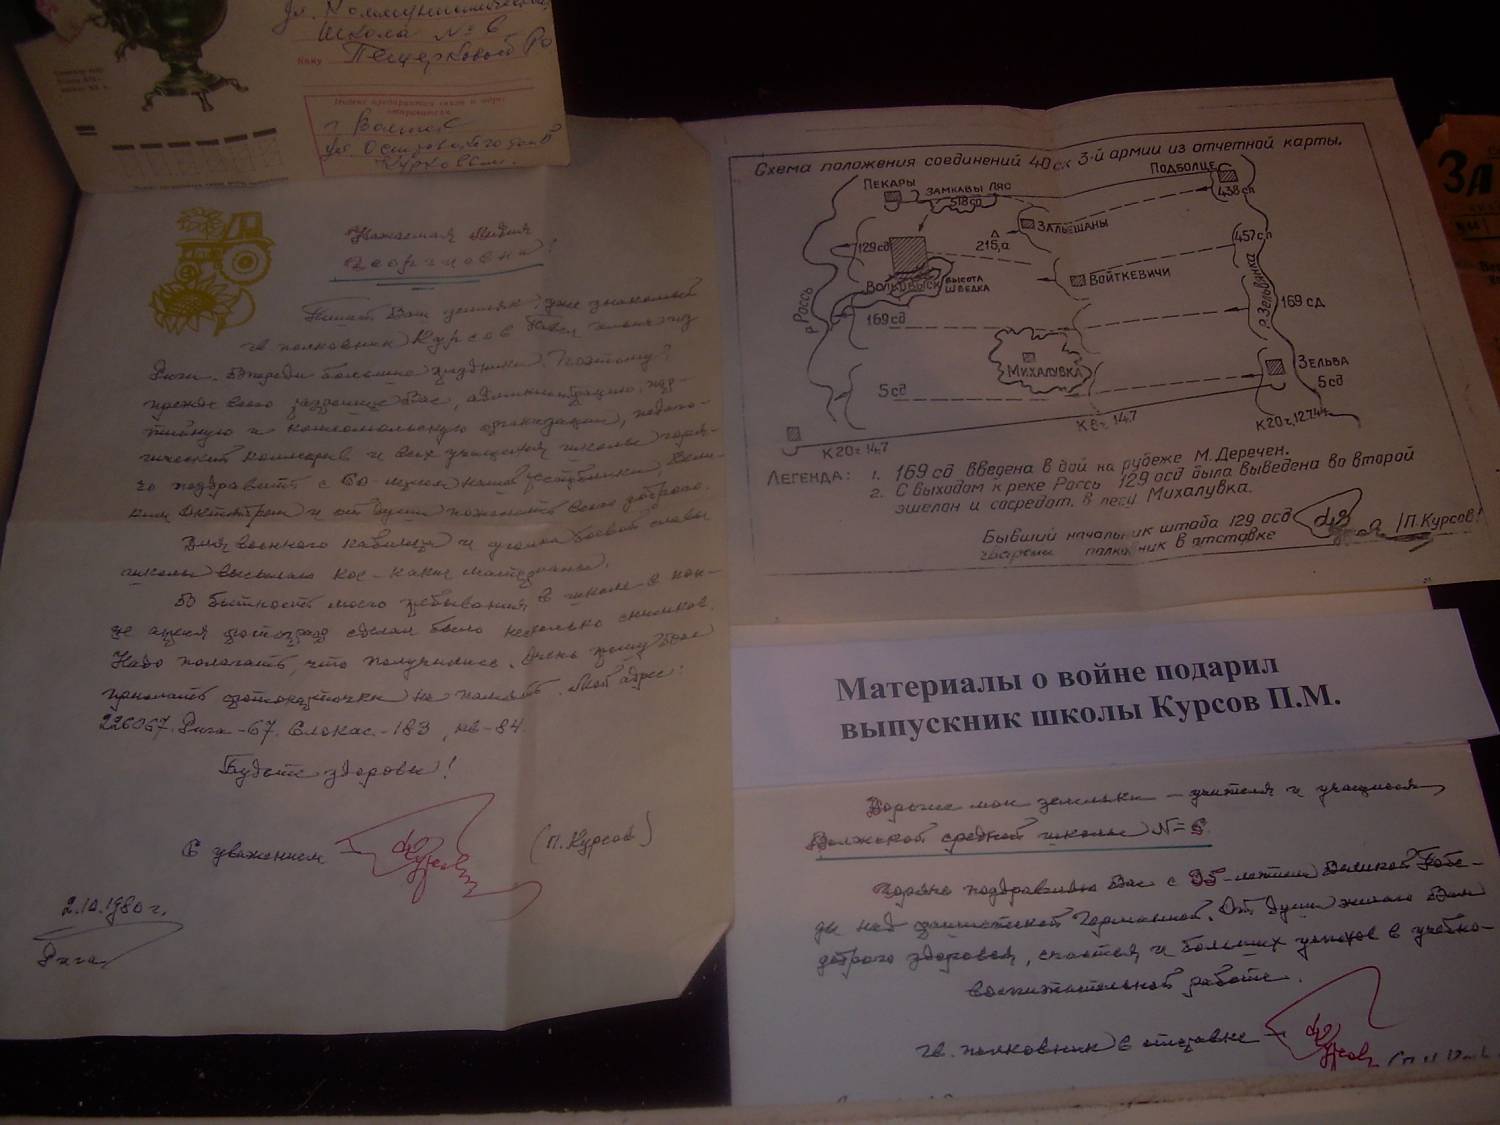 ул. Коммунистическая
Школа № 6
Кому Пещерковой
Индекс предприятия связи и адрес
отправителя
г Волжск
Уважаемая Лидия
Георгиевна!
Пишет Вам земляк, уже знакомый
гв. полковник Курсов Павел
Риги. Впереди большие праздники. Поэтому?
прежде всего разрешите Вас, администрацию, пар-
тийную и комсомольскую организации, педаго-
гический коллектив и всех учащихся школы горя-
чо поздравить с 60-летием нашей республики, Вели-
ким Октябрём и от души пожелать всего доброго.
Для военного кабинета и уголка боевой славы
школы высылаю кое-какие материалы.
В бытность моего пребывания в школе в кон-
це апреля фотограф сделал было несколько снимков.
Надо полагать, что получились. Очень прошу Вас
прислать фотокарточки на память. Мой адрес:
226067. Рига-67. Слокас-183, кв-84.
Будьте здоровы!
С уважением Курсов (П. Курсов)
2.10.1980 г.
Рига
Схема положения соединений 40 ск 3-й армии из отчетной карты.
ПЕКАРЫ
ЗАМКАВЫ ЛЯС
ПОДБОЛЦЕ
518 сп
438 сп
ЗАЛЬЕШАНЫ
129 сд
215,а
457 сп
ВОЛКОВЫСК
ВЫСОТА
ШВЕДКА
ВОЙТКЕВИЧИ
р. Россь
р. Зельвянка
169 сд
169 сд
МИХАЛУВКА
ЗЕЛЬВА
5 сд
5 сд
К 20 ч. 14.7
К 8 ч. 14.7
К 20 ч. 12.7.44
ЛЕГЕНДА: 1. 169 сд введена в бой на рубеже М. Деречен.
2. С выходом к реке Россь 129 осд была выведена во второй
эшелон и сосредот. в лесу Михалувка.
Бывший начальник штаба 129 осд
гвардии полковник в отставке /П. Курсов/
ЗА
Материалы о войне подарил
выпускник школы Курсов П.М.
Дорогие мои земляки – учителя и учащиеся
Волжской средней школы № 6
Горячо поздравляю Вас с 35-летием Великой Побе-
ды над фашистской Германией. От души желаю Вам
доброго здоровья, счастья и больших успехов в учебно-
воспитательной работе.
гв. полковник в отставке – Курсов